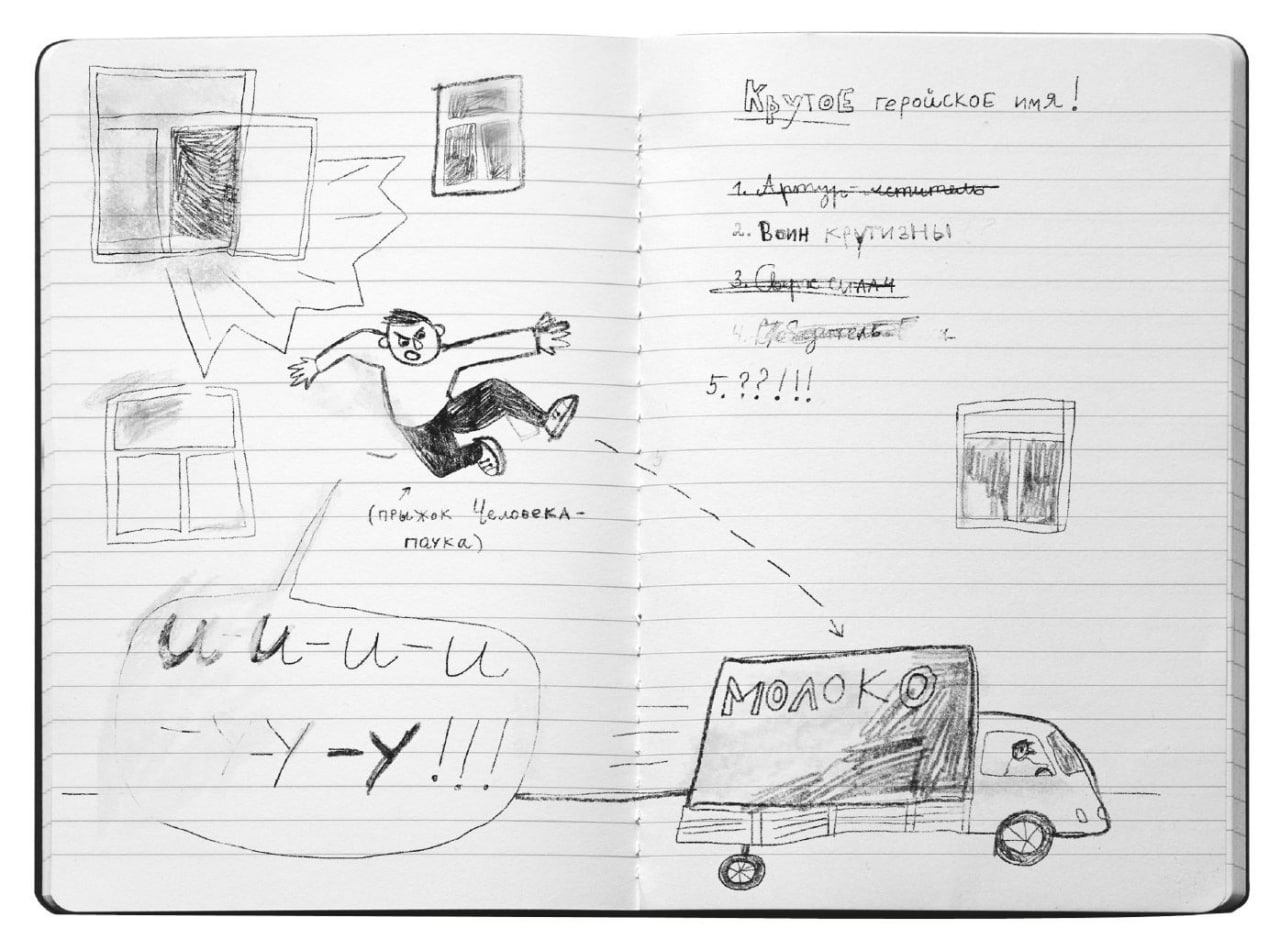 (прыжок Человека-
паука)
и-и-и-и
-у-у-у!!!
Крутое геройское имя!
1. Артур-мститель
2. Воин крутизны
3. Сверхсилач
4.
5. ??!!!
МОЛОКО